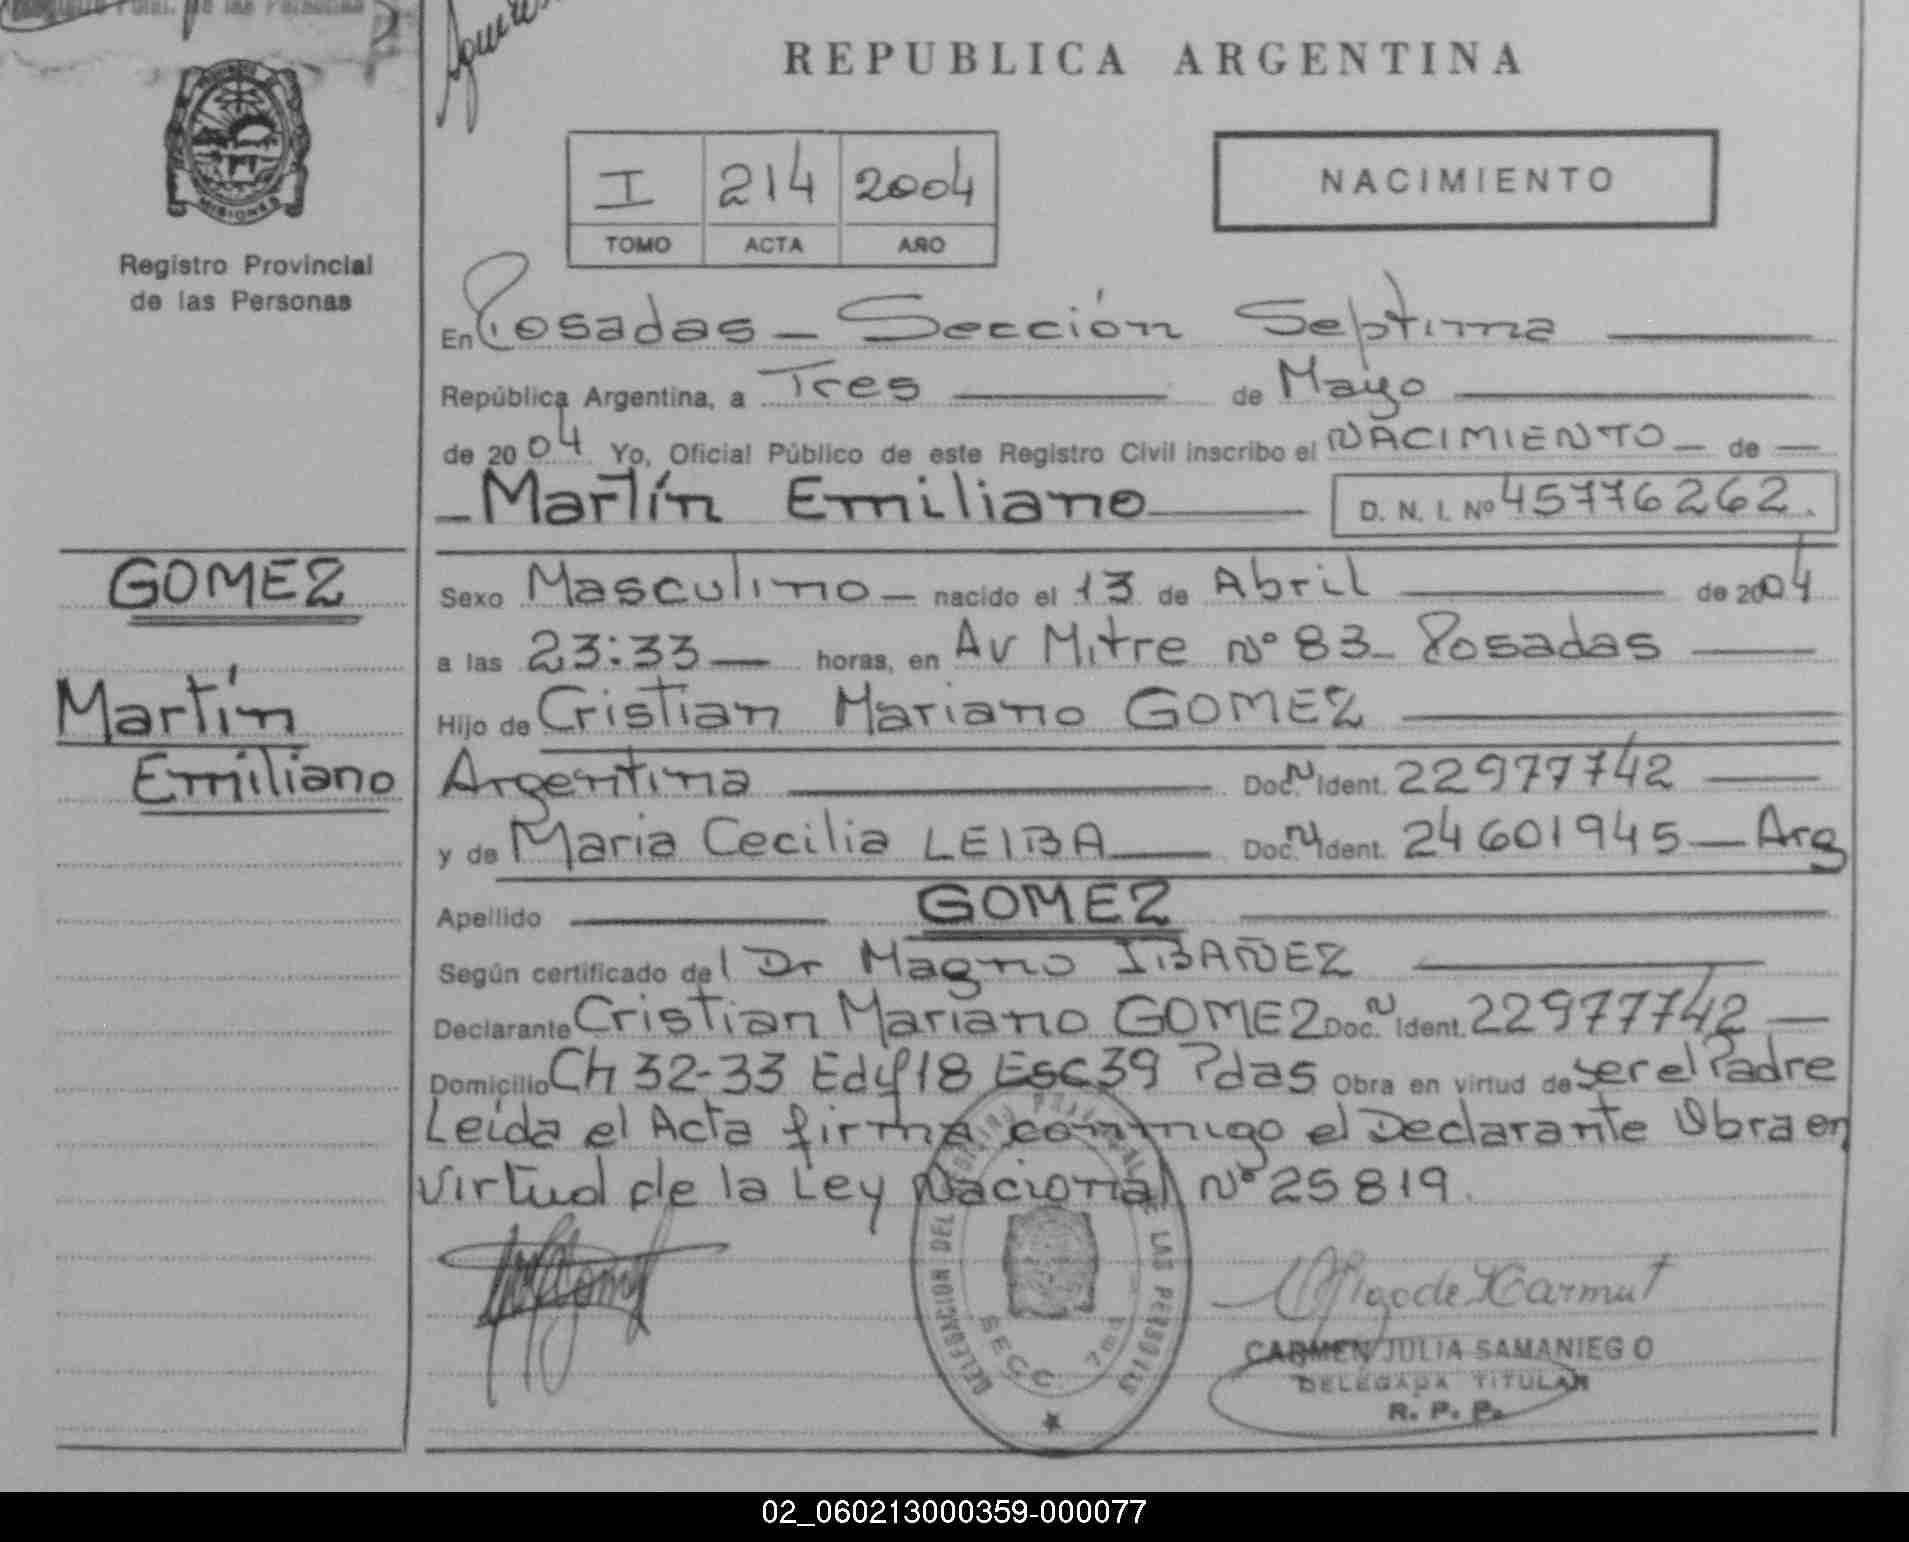 REPUBLICA ARGENTINA
MISIONES
Registro Provincial
de las Personas
I 214 2004
TOMO ACTA AÑO
NACIMIENTO
En Posadas - Sección Septima
República Argentina, a Tres de Mayo
de 2004 Yo, Oficial Público de este Registro Civil inscribo el NACIMIENTO - de
Martín Emiliano D. N. I. Nº 45776262.
GOMEZ
Martín
Emiliano
Sexo Masculino nacido el 13 de Abril de 2004
a las 23:33 horas, en Av Mitre Nº 83 - Posadas
Hijo de Cristian Mariano GOMEZ
Argentina Doc. N Ident. 22977742
y de Maria Cecilia LEIBA Doc. N Ident. 24601945 - Arg
Apellido GOMEZ
Según certificado del Dr Magno IBAÑEZ
Declarante Cristian Mariano GOMEZ Doc. N Ident. 22977742
Domicilio Ch 32-33 Edif 18 Esc 39 Pdas Obra en virtud de ser el Padre
Leída el Acta firma conmigo el Declarante Obra en
virtud de la Ley Nacional Nº 25819.
DELEGACION DEL REGISTRO PROVINCIAL DE LAS PERSONAS
SECC. 7ma
CARMEN JULIA SAMANIEGO
DELEGADA TITULAR
R. P. P.
02_060213000359-000077